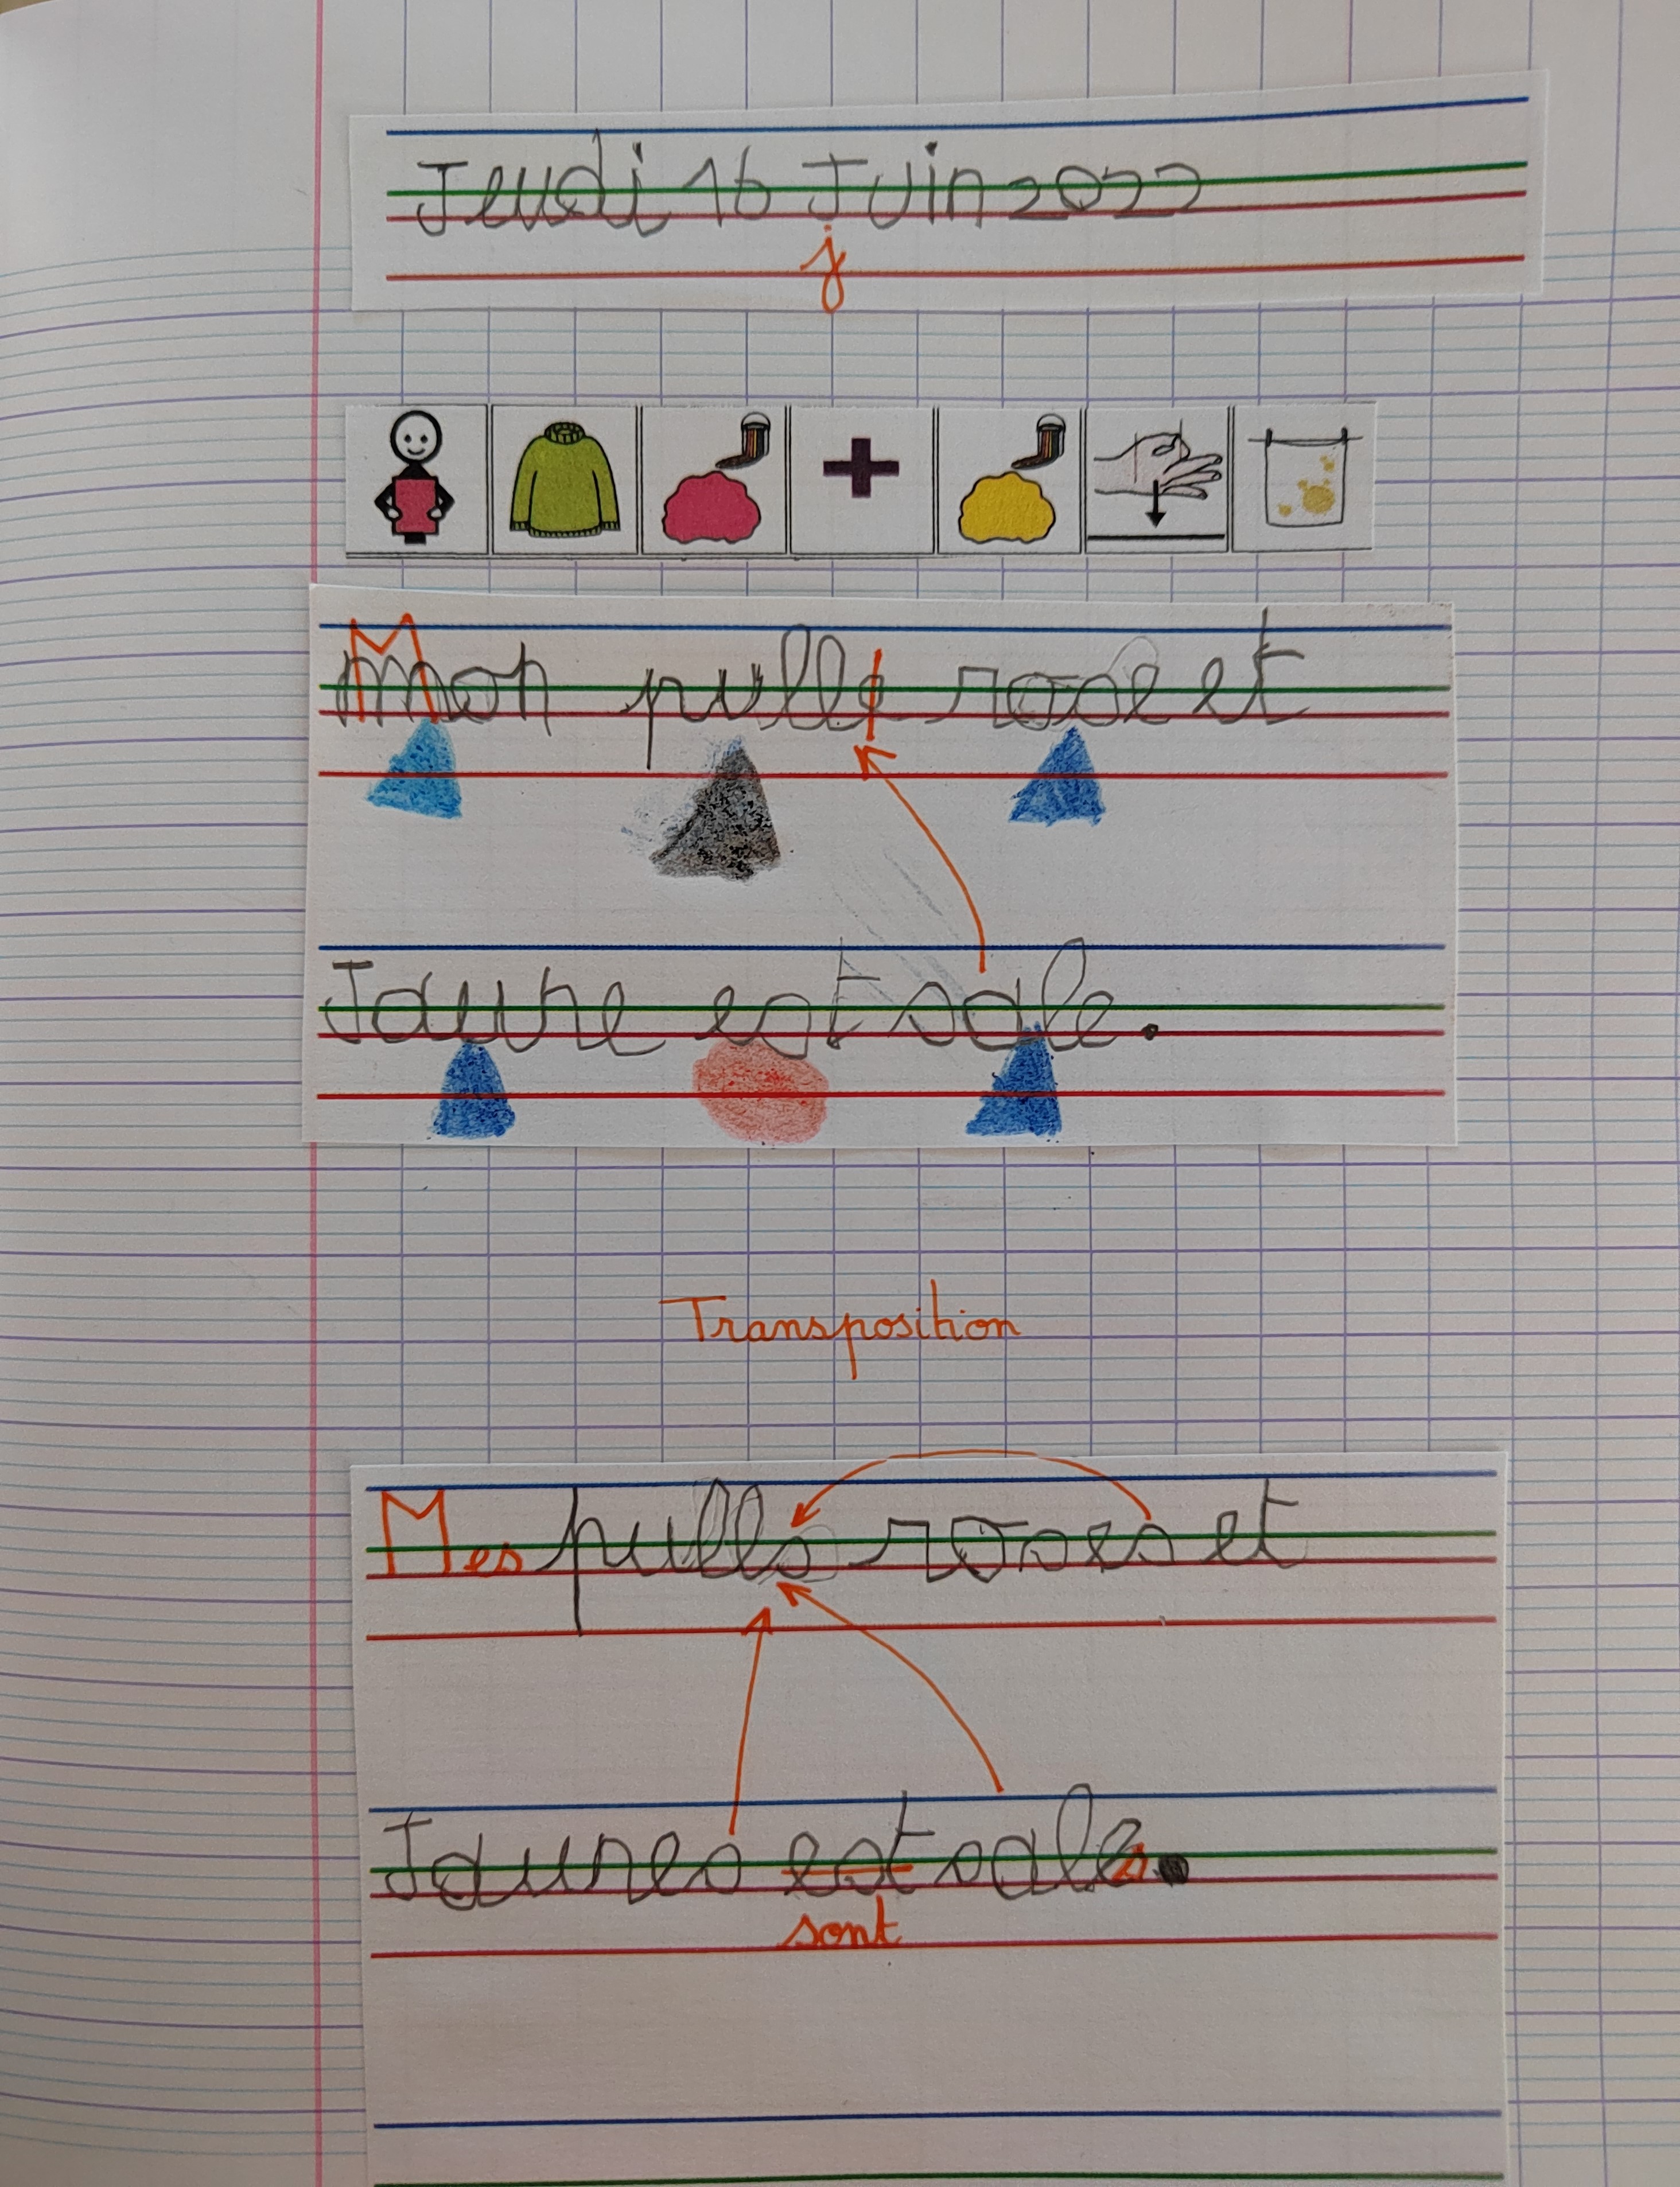 Jeudi 16 Juin 2022
j
Mon pulle rose et
Jaune est sale.
Transposition
Mes pulls roses et
Jaunes est sales.
sont